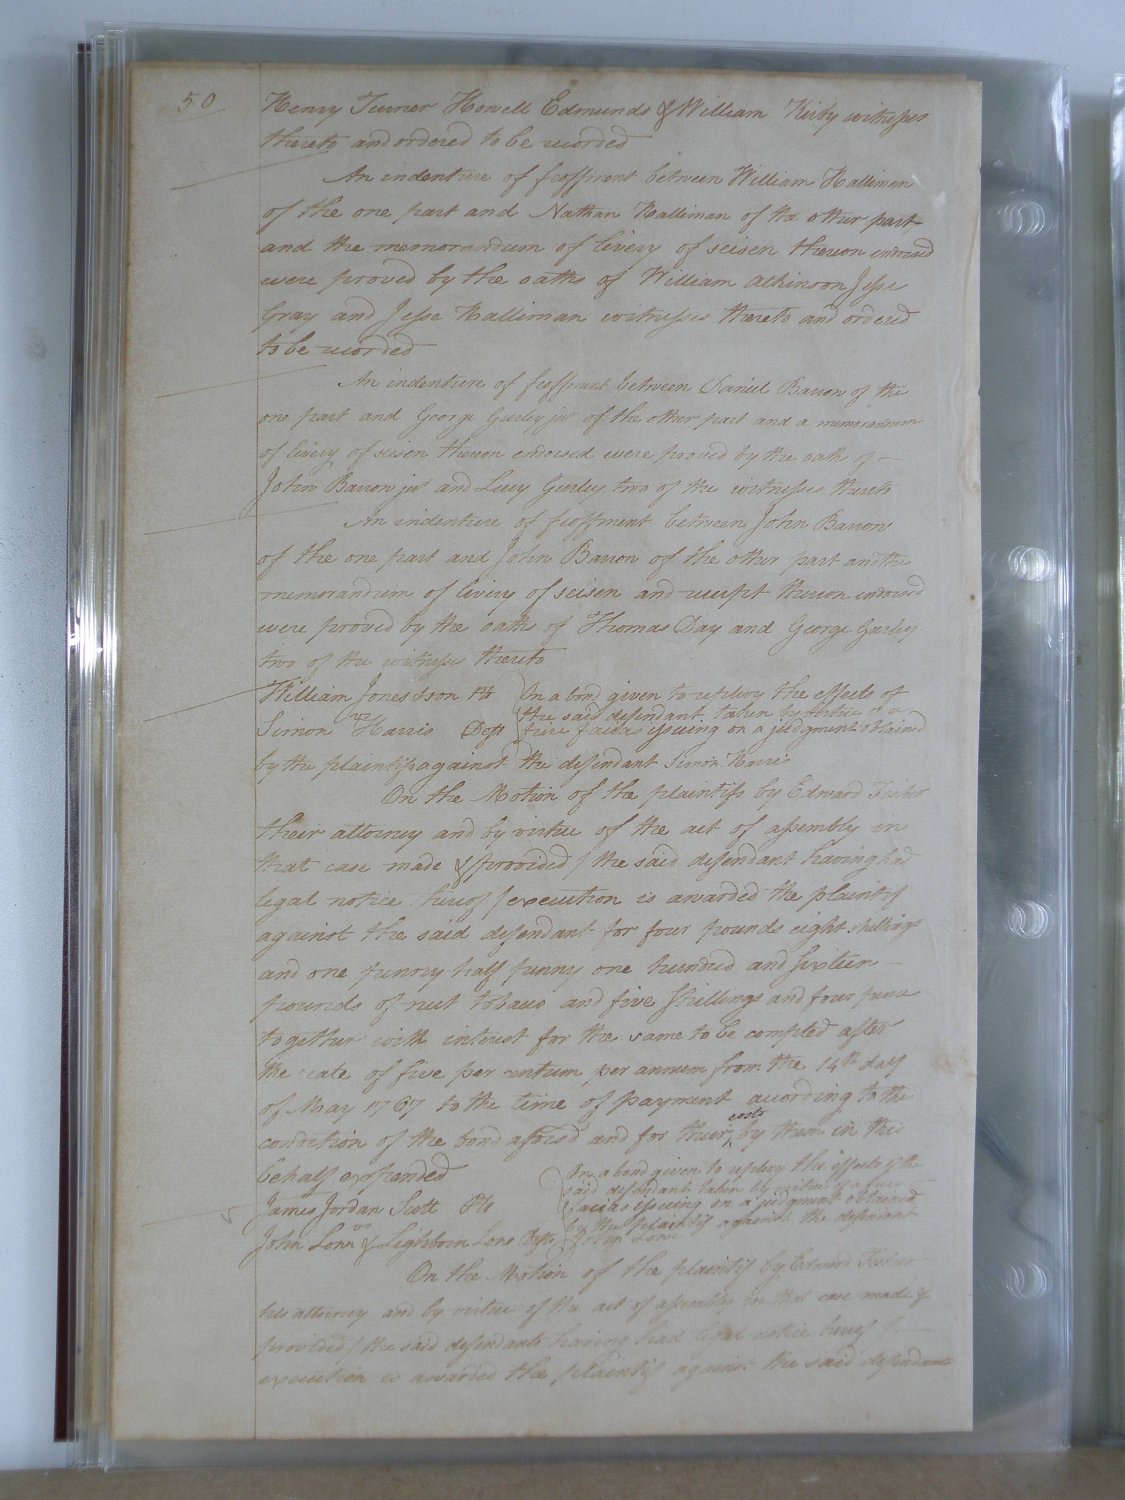 50
Henry Turner Howell Edmunds & William Kirby witnesses
thereto and ordered to be recorded
An indenture of feoffment between William Halliman
of the one part and Nathan Halliman of the other part
and the memorandum of livery of seisen thereon endorsed
were proved by the oaths of William Atkinson Jesse
Gray and Jesse Halliman witnesses thereto and ordered
to be recorded
An indenture of feoffment between Daniel Barron of the
one part and George Gurley jur of the other part and a memorandum
of livery of seisen thereon endorsed were proved by the oaths of
John Barron jur and Lucy Gurley two of the witnesses thereto
An indenture of feoffment between John Barron
of the one part and John Barron of the other part and the
memorandum of livery of seisen and receipt thereon endorsed
were proved by the oaths of Thomas Day and George Gurley
two of the witnesses thereto
William Jones & son Plts
vs
Simon Harris Deft
In a bond given to replevy the effects of
the said defendant taken by virtue of a
fiere facias issuing on a judgment obtained
by the plaintifs against the defendant Simon Harris
On the Motion of the plaintifs by Edward Fisher
their attorney and by virtue of the act of assembly in
that case made & provided / the said defendant having had
legal notice hereof / execution is awarded the plaintifs
against the said defendant for four pounds eight shillings
and one penny half penny one hundred and sixteen
pounds of nett tobacco and five Shillings and four pence
together with interest for the same to be compted after
the rate of five per centum per annum from the 14th day
of May 1767 to the time of payment according to the
condition of the bond aforesd and for their costs by them in this
behalf expended
James Jordan Scott Plt
vs
John Lone & Lighborn Lone Defts
In a bond given to replevy the effects of the
said defendant taken by virtue of a fiere
facias issuing on a judgment obtained
by the plaintif against the defendant
John Lone
On the Motion of the plaintif by Edward Fisher
his attorney and by virtue of the act of assembly in that case made &
provided / the said defendants having had legal notice hereof /
execution is awarded the plaintif against the said defendants